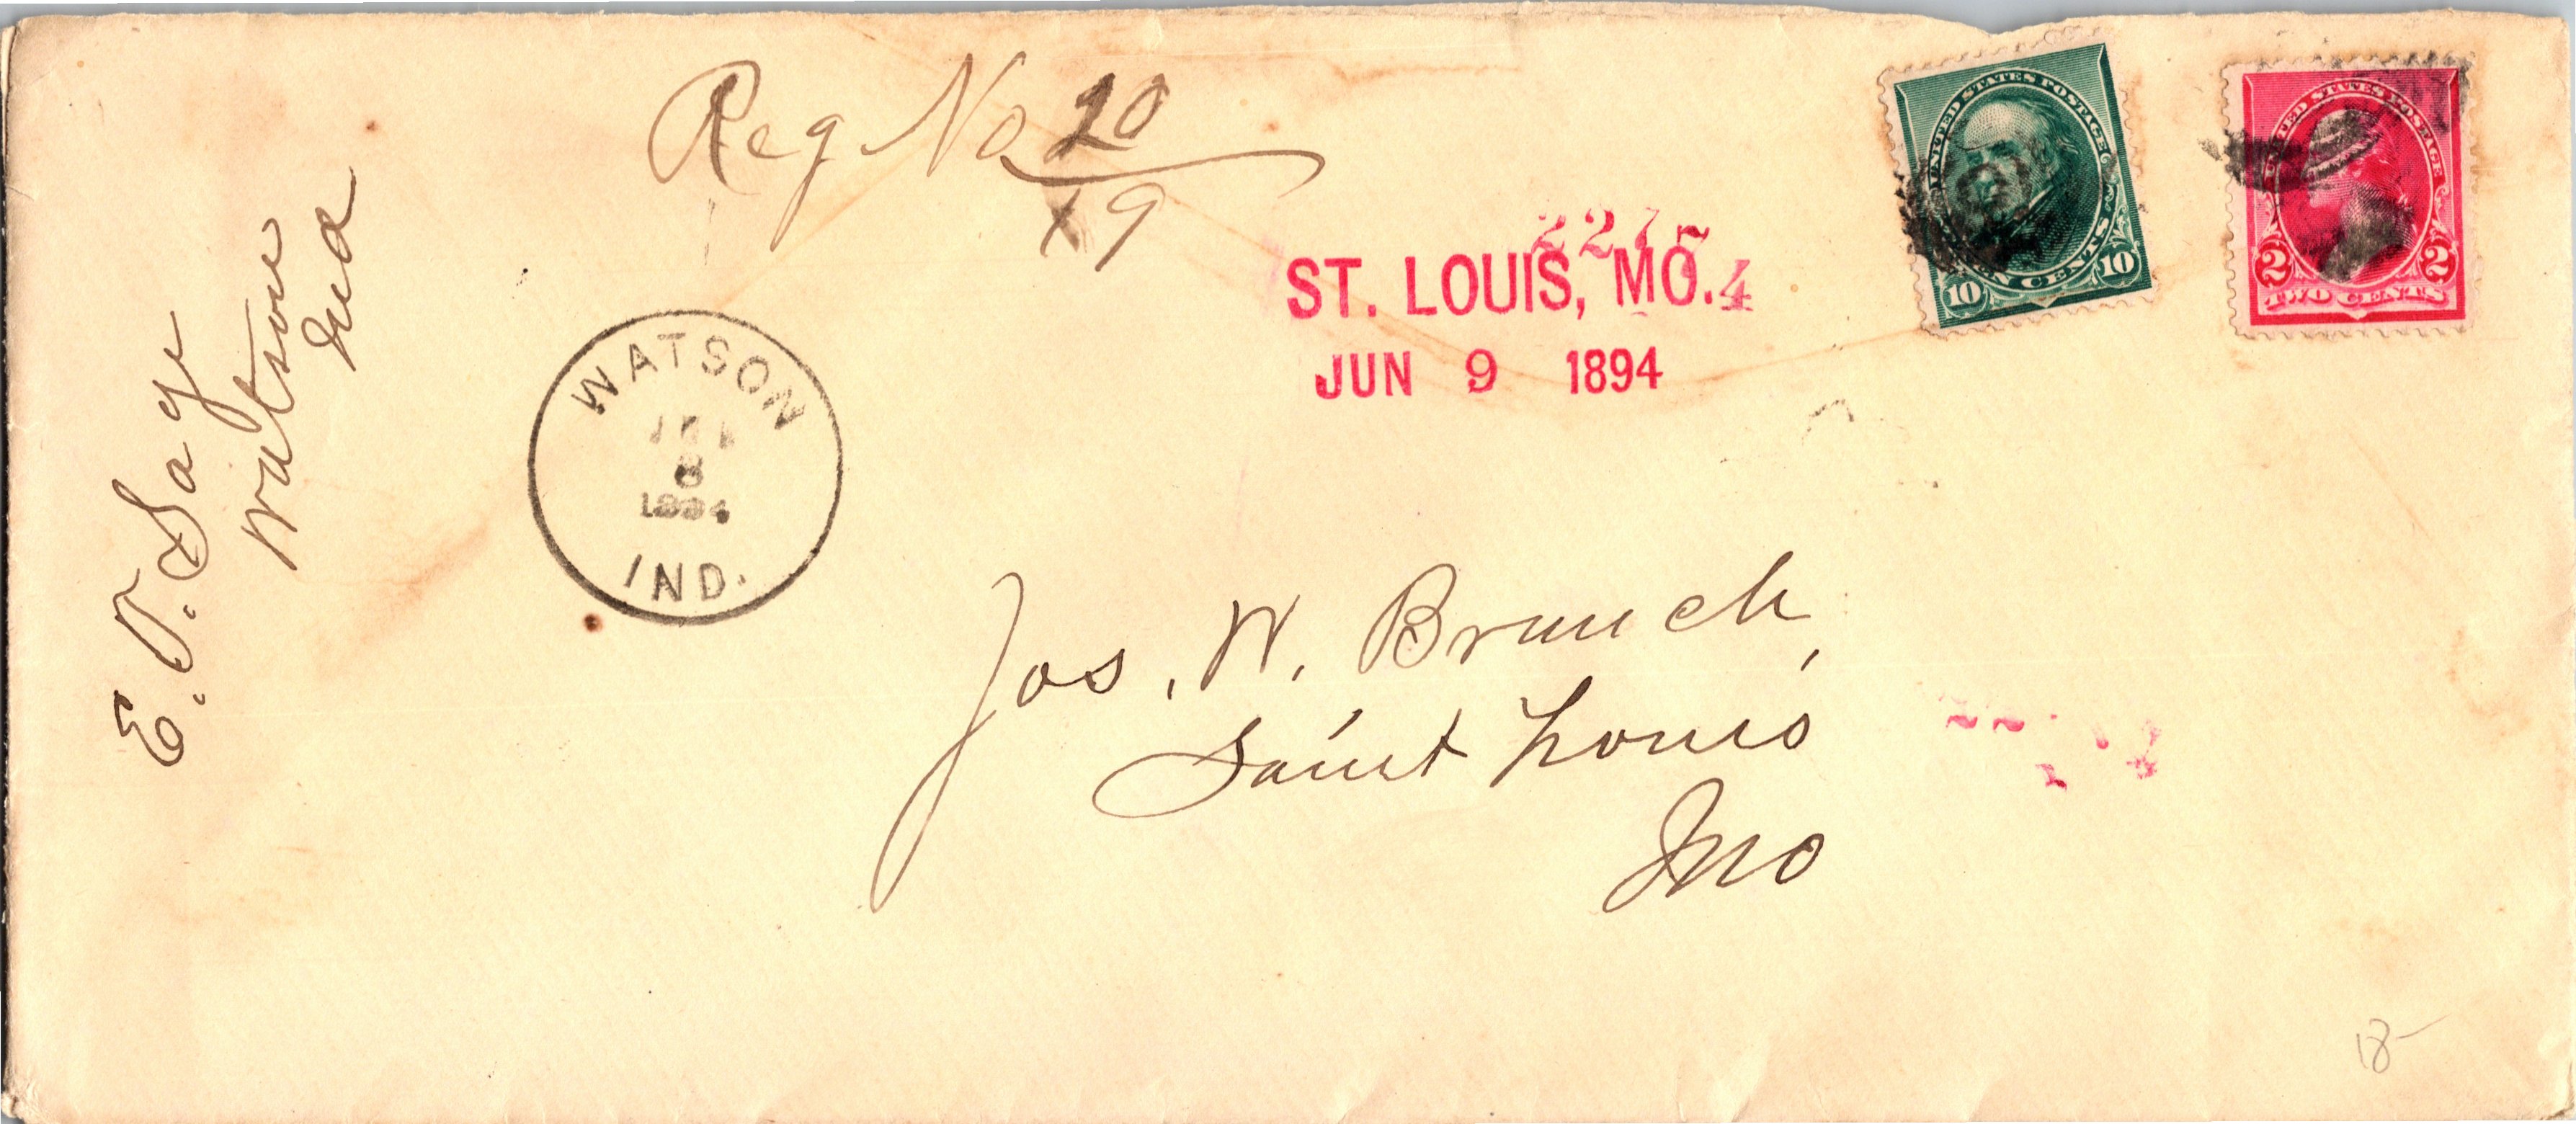 Reg No 20
19
2215
ST. LOUIS, MO. 4
JUN 9 1894
UNITED STATES POSTAGE
TEN CENTS
10 10
UNITED STATES POSTAGE
2 2
TWO CENTS
E. O. Say
Watson
Ind
WATSON
8
1894
IND.
Jos. W. Branch,
Saint Louis
Mo
18-